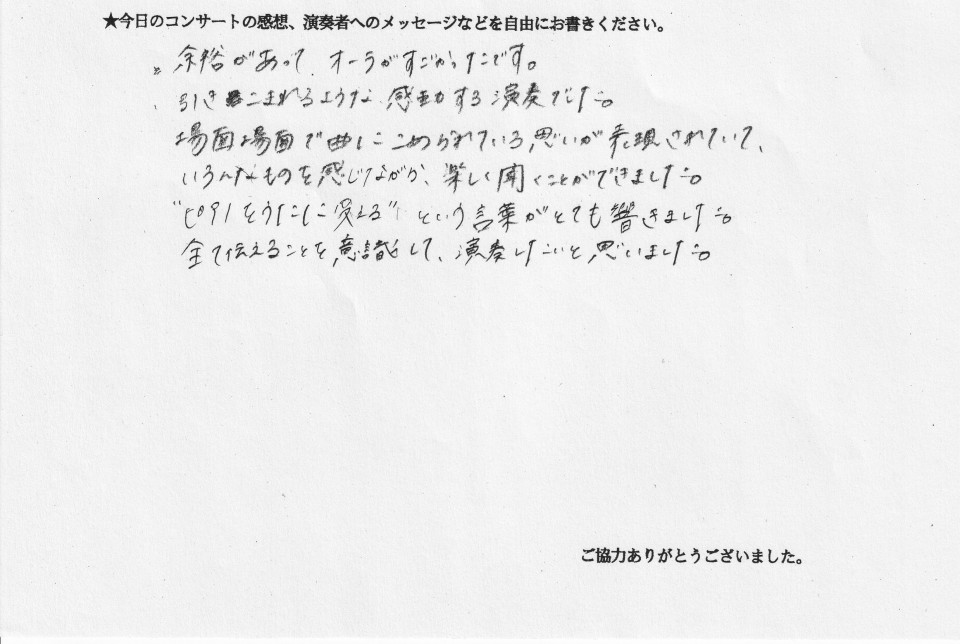 ★今日のコンサートの感想、演奏者へのメッセージなどを自由にお書きください。
余裕があって、オーラがすごかったです。
引きこまれるような、感動する演奏でした。
場面場面で曲にこめられている思いが表現されていて、
いろんなものを感じながら、楽しく聞くことができました。
"ピアノをうたに変える"という言葉がとても響きました。
全て伝えることを意識して、演奏したいと思いました。
ご協力ありがとうございました。